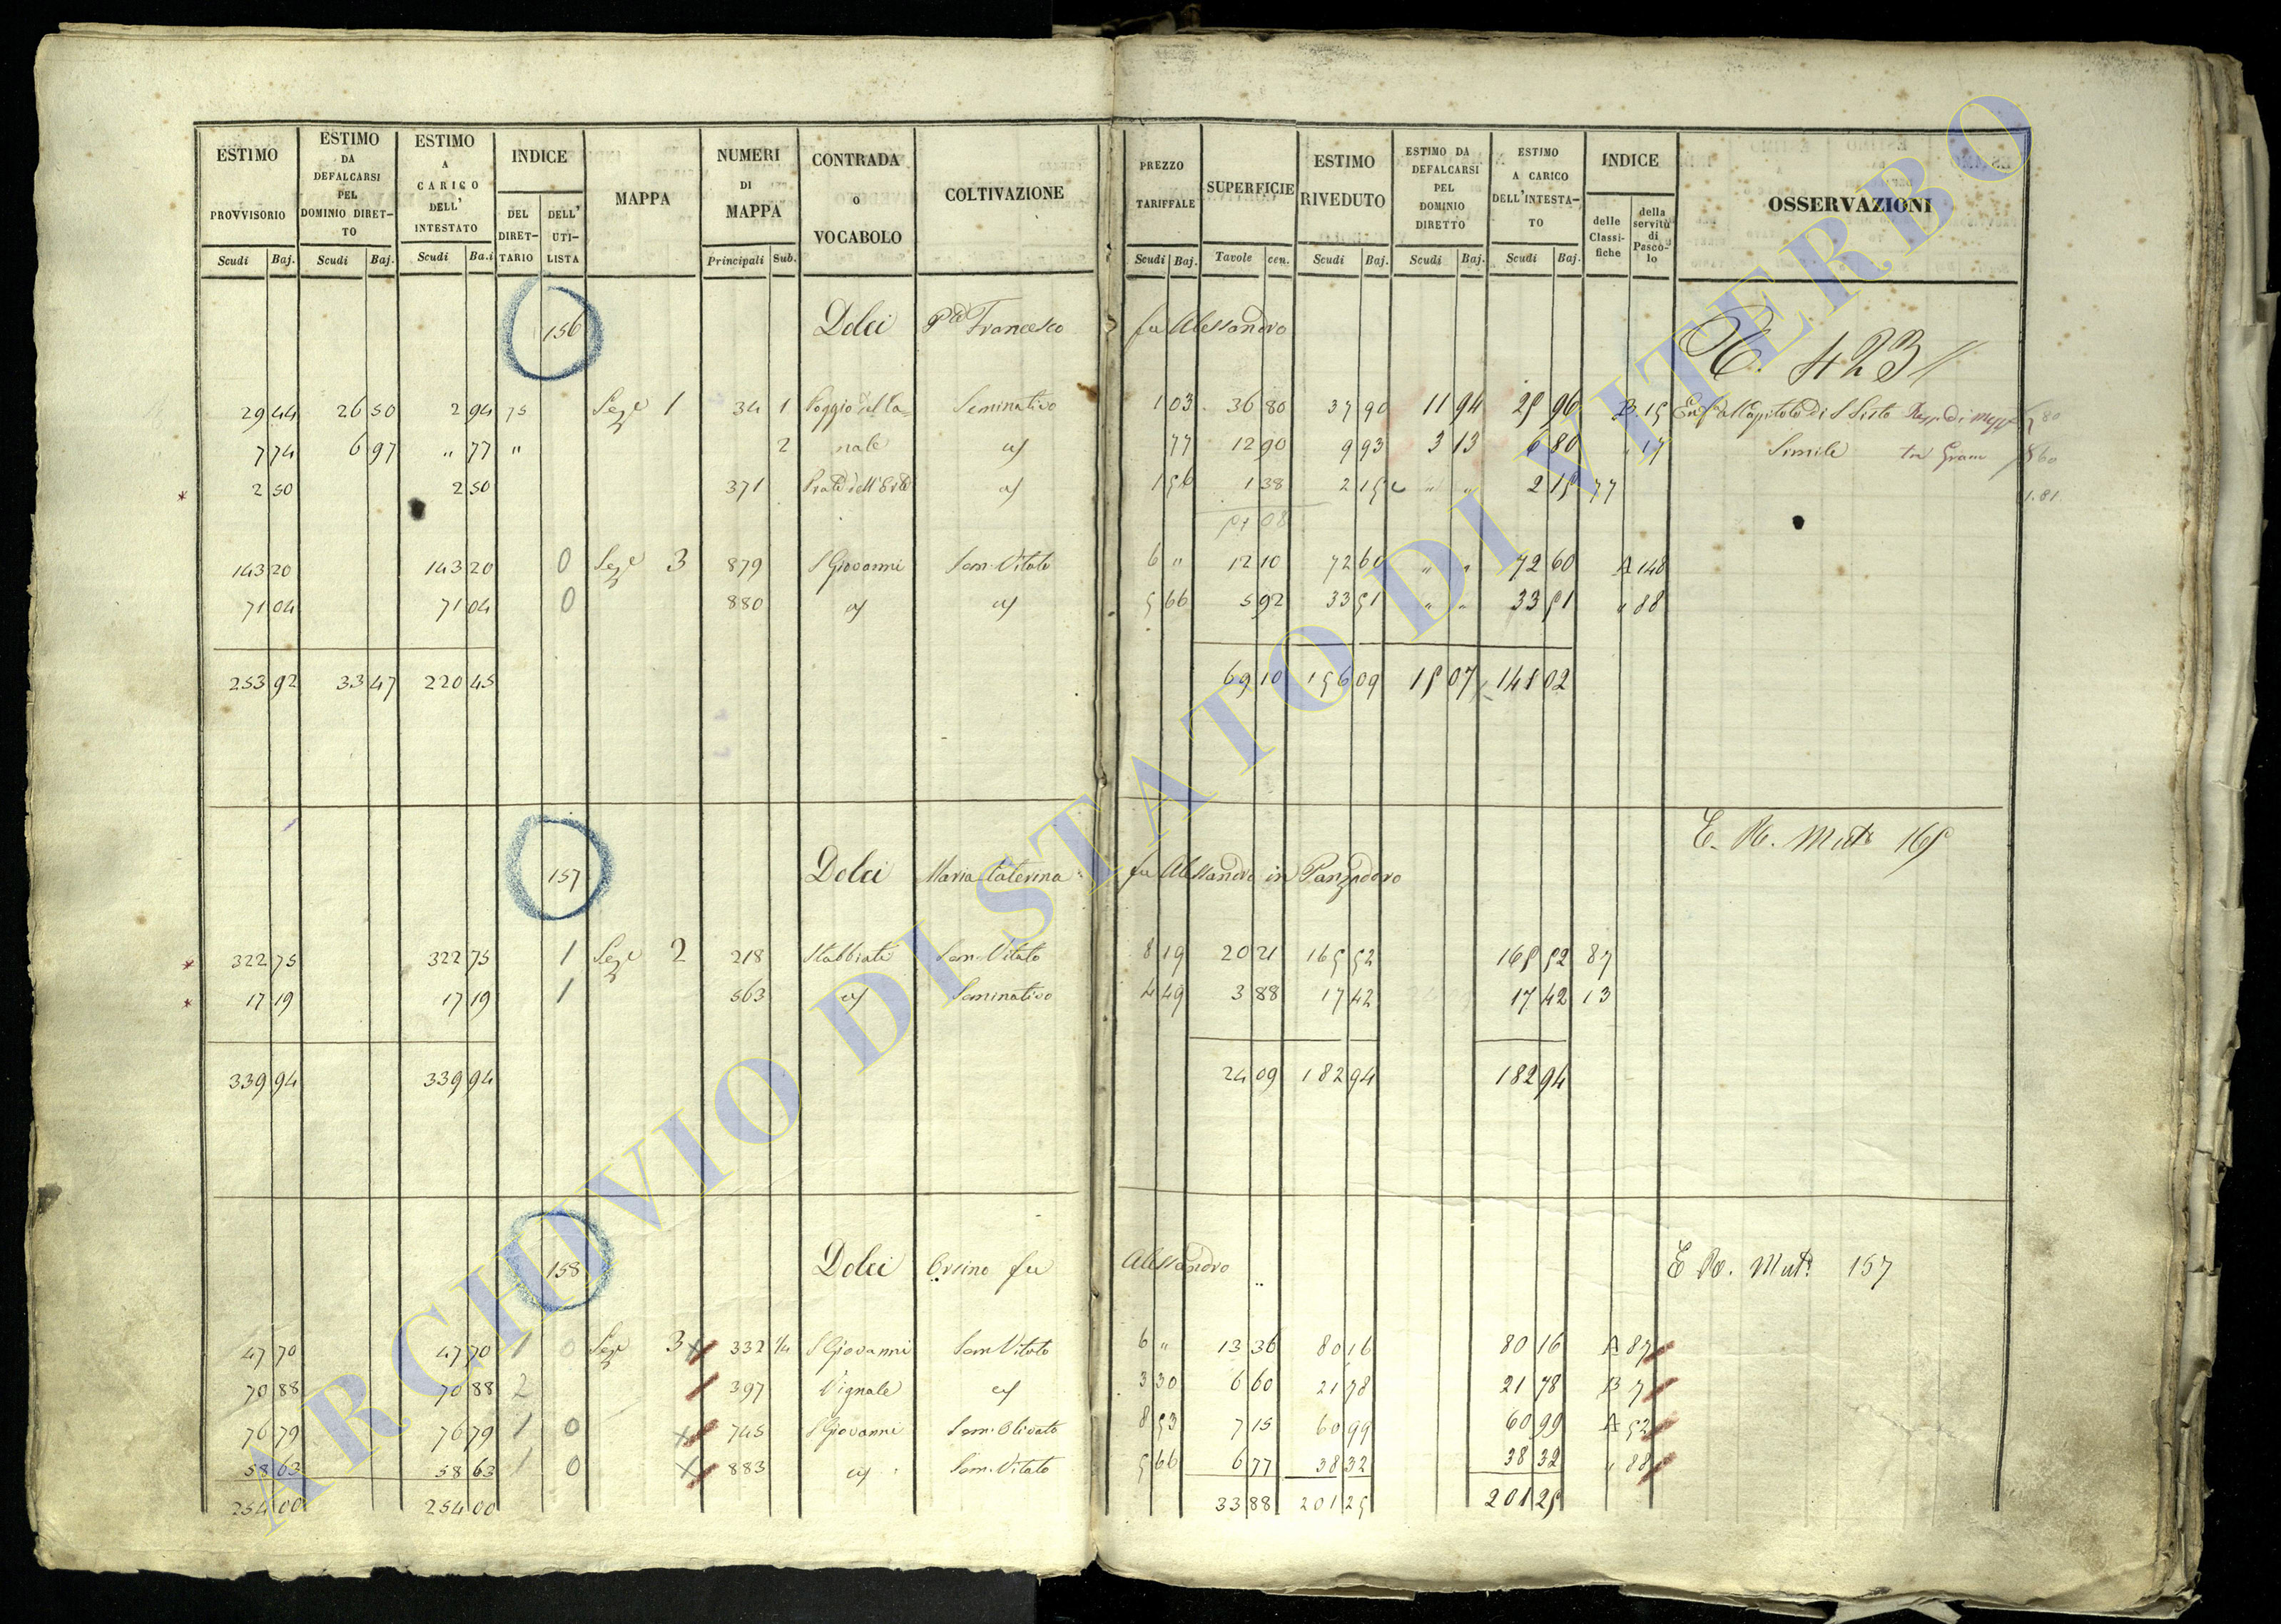 ESTIMO PROVVISORIO Scudi Baj.
ESTIMO DA DEFALCARSI PEL DOMINIO DIRET-TO Scudi Baj.
ESTIMO A CARICO DELL' INTESTATO Scudi Ba.i
INDICE DEL DIRET-TARIO DELL' UTI-LISTA
MAPPA
NUMERI DI MAPPA Principali Sub.
CONTRADA o VOCABOLO
COLTIVAZIONE
PREZZO TARIFFALE Scudi Baj.
SUPERFICIE Tavole cen.
ESTIMO RIVEDUTO Scudi Baj.
ESTIMO DA DEFALCARSI PEL DOMINIO DIRETTO Scudi Baj.
ESTIMO A CARICO DELL'INTESTA-TO Scudi Baj.
INDICE delle Classi-fiche della servitù di Pasco-lo
OSSERVAZIONI
156 Dolci Francesco fu Alessandro
423
29 44 26 50 2 94 75 Seze 1 34 1 Poggio del la= Seminativo 1 03 36 80 37 90 11 94 25 96 B 15
7 74 6 97 " 77 " 2 nale 77 12 90 9 93 3 13 6 80 " 17 Simile
* 2 50 2 50 371 1 56 1 38 2 15 " " 2 15 77
143 20 143 20 0 Seze 3 879 S Giovanni Sem. Vitato 6 " 12 10 72 60 " " 72 60 A 148
71 04 71 04 0 880 5 66 5 92 33 51 " " 33 51 " 88
253 92 33 47 220 45 69 10 156 09 15 07 141 02
157 Dolci Maria Caterina fu Alessandro in
E. R. Mut. 165
* 322 75 322 75 1 Seze 2 218 Stabbiate Sem. Vitato 8 19 20 21 165 52 165 52 87
* 17 19 17 19 1 563 Seminativo 4 49 3 88 17 42 17 42 13
339 94 339 94 24 09 182 94 182 94
158 Dolci Orsino fu Alessandro
E R. Mut. 157
47 70 47 70 1 0 Seze 3 332 1/4 S Giovanni Sem Vitato 6 " 13 36 80 16 80 16 A 87
70 88 70 88 2 397 Vignale 3 30 6 60 21 78 21 78 B 7
76 79 76 79 1 0 745 S Giovanni Sem. Olivato 8 53 7 15 60 99 60 99 A 52
58 63 58 63 1 0 883 Sem. Vitato 5 66 6 77 38 32 38 32 " 88
254 00 254 00 33 88 201 25 201 25
ARCHIVIO DI STATO DI VITERBO